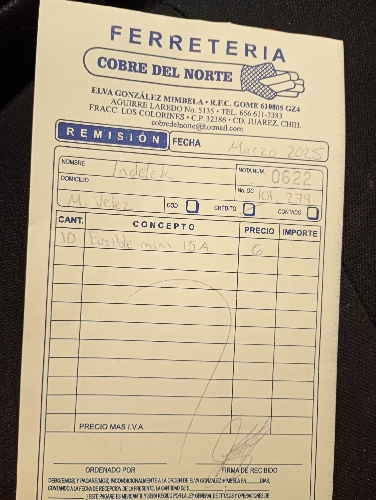 FERRETERIA
COBRE DEL NORTE
ELVA GONZÁLEZ MIMBELA • R.F.C. GOME 610805 GZ4
AGUIRRE LAREDO No. 5135 • TEL. 656 611-3383
FRACC. LOS COLORINES • C.P. 32386 • CD. JUAREZ, CHIH.
cobredelnorte@hotmail.com
REMISIÓN FECHA Marzo 2025
NOMBRE Indelek NOTA NUM. 0622
DOMICILIO M. Velez No. OC
COD CRÉDITO CONTADO
CANT. CONCEPTO PRECIO IMPORTE
10 Fusible mini 15A 6
PRECIO MAS I.V.A.
ORDENADO POR FIRMA DE RECIBIDO
DEBEMOS(S) Y PAGAREMOS(S) INCONDICIONALMENTE A LA ORDEN DE ELVA GONZALEZ MIMBELA EN DIAS,
CONTANDO A LA FECHA DE RECEPCION DE LA PRESENTE, LA CANTIDAD DE $
) ESTE PAGARE ES MERCANTIL Y SERA REGIDO POR LA LEY GENERAL DE TITULOS Y OPERACIONES DE